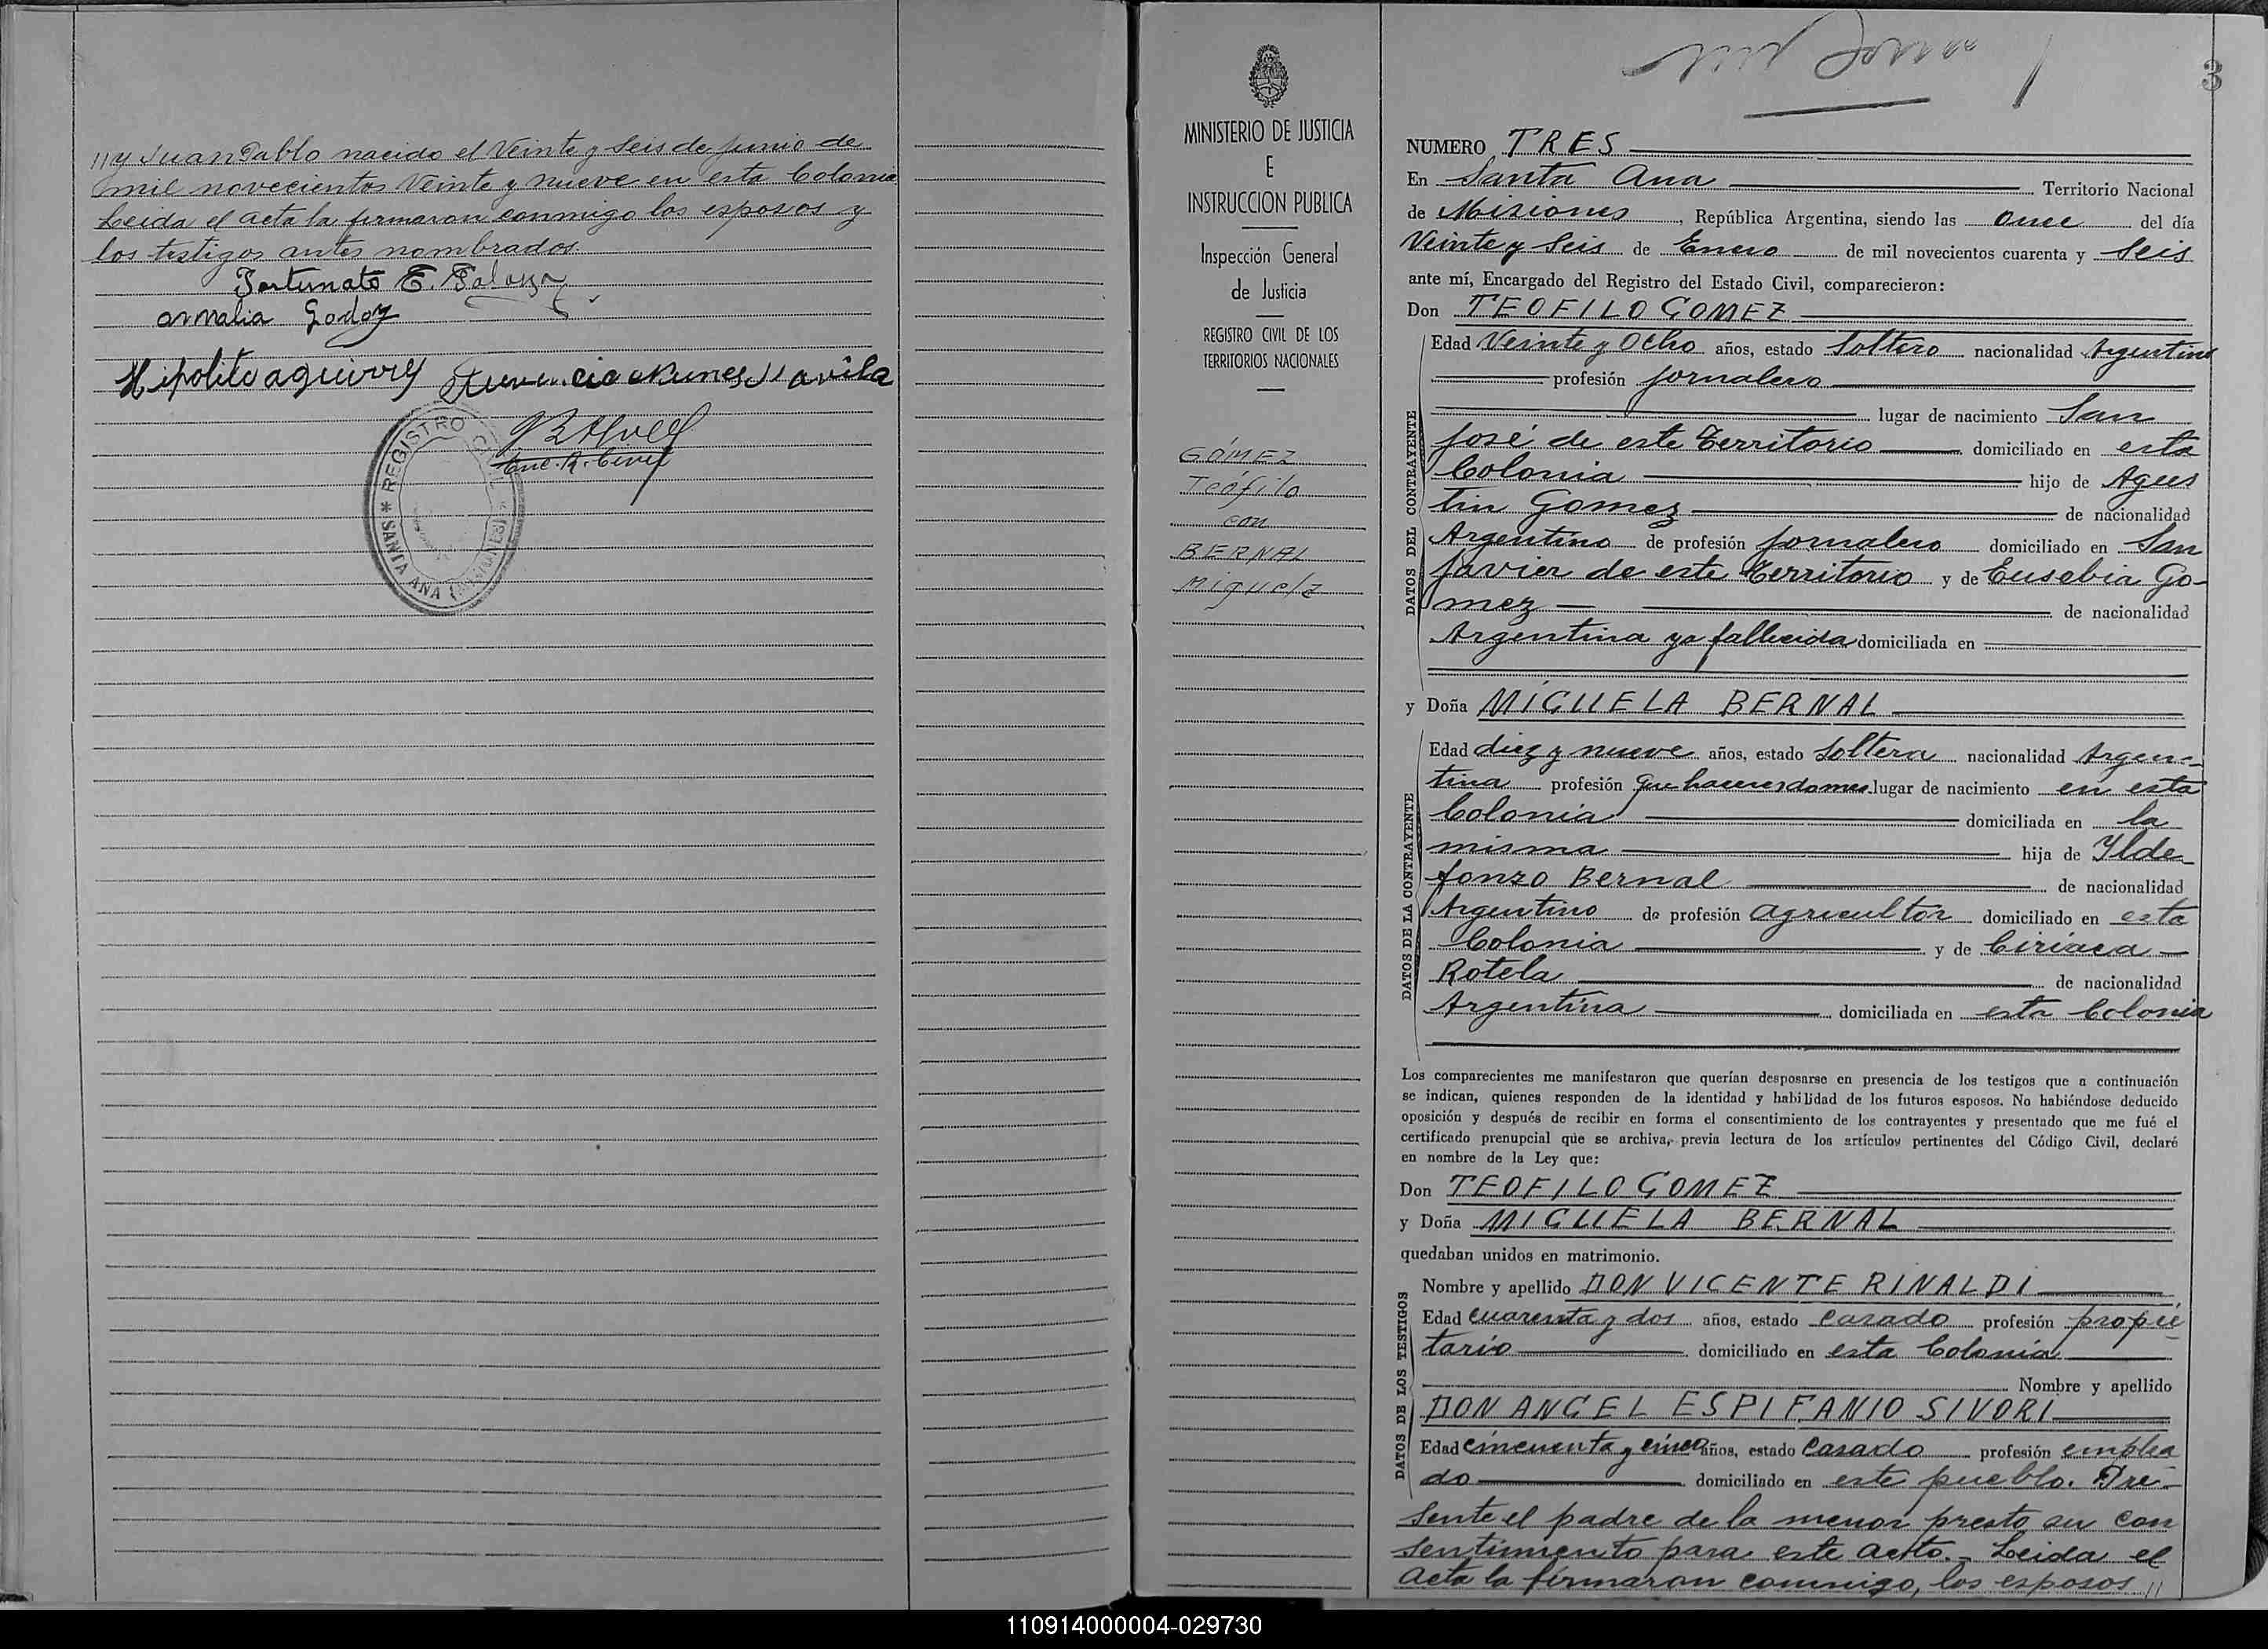 //y Juan Pablo nacido el Veinte y Seis de Junio de
mil novecientos Veinte y nueve en esta Colonia
Leida el acta la firmaron conmigo los esposos y
los testigos antes nombrados.
Fortunato E.
Amalia Godoy
Hipolito aguirre
Enc. R. Civil
* REGISTRO CIVIL * SANTA ANA (MISIONES)
MINISTERIO DE JUSTICIA
E
INSTRUCCION PUBLICA
Inspección General
de Justicia
REGISTRO CIVIL DE LOS
TERRITORIOS NACIONALES
GÓMEZ
Teófilo
con
BERNAL
Miguela
3
NUMERO TRES
En Santa Ana Territorio Nacional
de Misiones, República Argentina, siendo las once del día
Veinte y Seis de Enero de mil novecientos cuarenta y Seis
ante mí, Encargado del Registro del Estado Civil, comparecieron:
Don TEOFILO GOMEZ
DATOS DEL CONTRAYENTE
Edad Veinte y Ocho años, estado Soltero nacionalidad Argentino
profesión jornalero
lugar de nacimiento San
José de este Territorio domiciliado en esta
Colonia hijo de Agus
tin Gomez de nacionalidad
Argentino de profesión jornalero domiciliado en San
Javier de este Territorio y de Eusebia Go-
mez de nacionalidad
Argentina ya fallecida domiciliada en
y Doña MIGUELA BERNAL
DATOS DE LA CONTRAYENTE
Edad diez y nueve años, estado Soltera nacionalidad Argen-
tina profesión Que haceres domes. lugar de nacimiento en esta
Colonia domiciliada en la
misma hija de Ylde
fonzo Bernal de nacionalidad
Argentino de profesión agricultor domiciliado en esta
Colonia y de Ciriaca
Rotela de nacionalidad
Argentina domiciliada en esta Colonia
Los comparecientes me manifestaron que querían desposarse en presencia de los testigos que a continuación
se indican, quienes responden de la identidad y habilidad de los futuros esposos. No habiéndose deducido
oposición y después de recibir en forma el consentimiento de los contrayentes y presentado que me fué el
certificado prenupcial que se archiva, previa lectura de los artículos pertinentes del Código Civil, declaré
en nombre de la Ley que:
Don TEOFILO GOMEZ
y Doña MIGUELA BERNAL
quedaban unidos en matrimonio.
DATOS DE LOS TESTIGOS
Nombre y apellido DON VICENTE RINALDI
Edad cuarenta y dos años, estado casado profesión propie
tario domiciliado en esta Colonia
Nombre y apellido
DON ANGEL ESPIFANIO SIVORI
Edad cincuenta y cinco años, estado casado profesión emplea
do domiciliado en este pueblo. Pre-
sente el padre de la menor presto su con
sentimiento para este acto.- Leida el
acta la firmaron conmigo, los esposos //
110914000004-029730